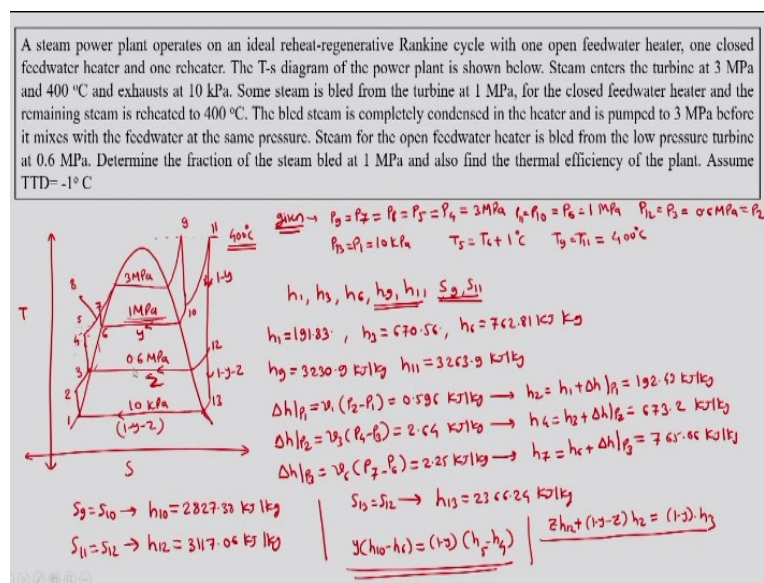 A steam power plant operates on an ideal reheat-regenerative Rankine cycle with one open feedwater heater, one closed
feedwater heater and one reheater. The T-s diagram of the power plant is shown below. Steam enters the turbine at 3 MPa
and 400 °C and exhausts at 10 kPa. Some steam is bled from the turbine at 1 MPa, for the closed feedwater heater and the
remaining steam is reheated to 400 °C. The bled steam is completely condensed in the heater and is pumped to 3 MPa before
it mixes with the feedwater at the same pressure. Steam for the open feedwater heater is bled from the low pressure turbine
at 0.6 MPa. Determine the fraction of the steam bled at 1 MPa and also find the thermal efficiency of the plant. Assume
TTD= -1° C
given → P9=P7=P8=P5=P4=3MPa P11=P10=P6=1 MPa P12=P3=06MPa=P2
P13=P1=10kPa T5=T6+1°C T9=T11=400°C
9 11 400°C
8 3MPa 1-y
T 7 1MPa 10
5 6 y
4
3 0.6 MPa 12
2 z 1-y-z
1 10 kPa 13
(1-y-z)
S
h1, h3, h6, h9, h11 S9, S11
h1=191.83, h3=670.56, h6=762.81 KJ Kg
h9=3230.9 KJ/kg h11=3263.9 KJ/kg
Δh|P1=v1(P2-P1)=0.596 KJ/kg → h2=h1+Δh|P1=192.42 KJ/kg
Δh|P2=v3(P4-P3)=2.64 KJ/kg → h4=h3+Δh|P2=673.2 KJ/kg
Δh|P3=v6(P7-P6)=2.25 KJ/kg → h7=h6+Δh|P3=765.06 KJ/kg
S9=S10 → h10=2827.38 KJ/kg
S11=S12 → h12=3117.06 KJ/kg
S13=S12 → h13=2366.24 KJ/kg
y(h10-h6)=(1-y)(h5-h4)
zh12+(1-y-z)h2=(1-y).h3